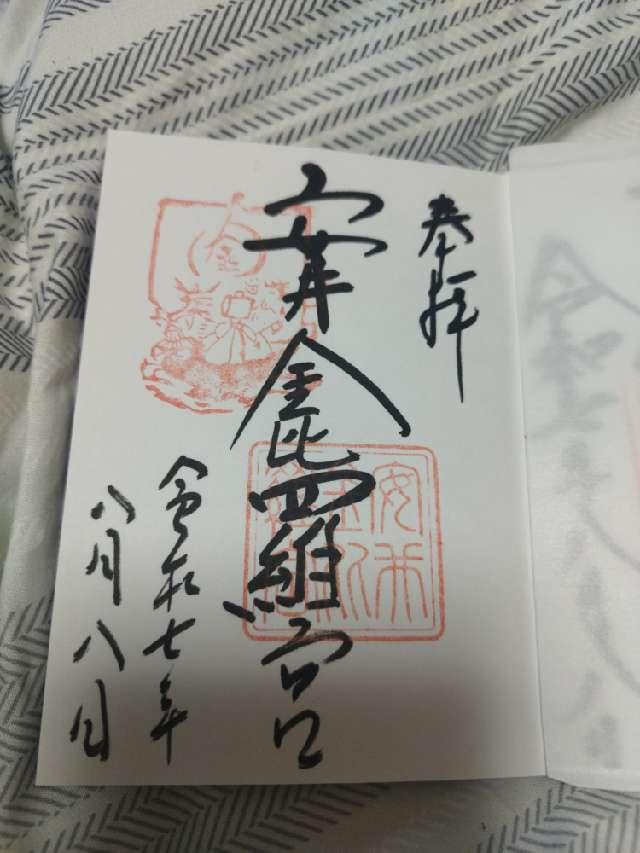 奉拝
安井金毘羅宮
令和七年
八月八日